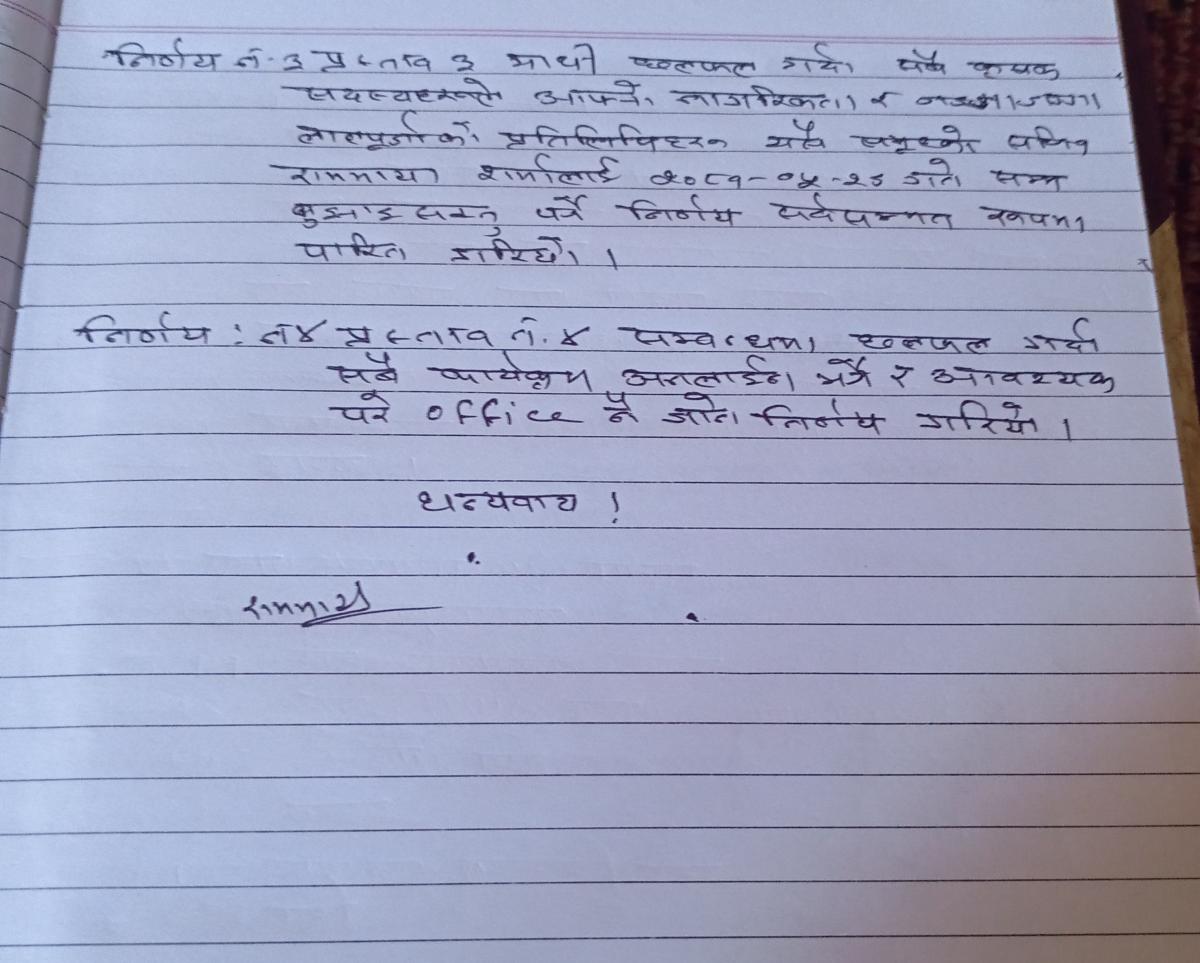 निर्णय नं. ३ प्रस्ताव ३ माथी छलफल गर्दा सबै कृषक
सदस्यहरूले आफ्नो नागरिकता र
लालपूर्जाको प्रतिलिपिहरू यसै समूहको सचिव
राममाया शर्मालाई २०८१-०५-२३ गते सम्म
बुझाइसक्नु पर्ने निर्णय सर्वसम्मत रूपमा
पारित गरियो ।
निर्णय : नं ४ प्रस्ताव नं. ४ सम्बन्धमा छलफल गर्दा
सबै कार्यक्रम अनलाईन भर्ने र आवश्यक
परे office नै जाने निर्णय गरियो ।
धन्यवाद !
राममाया